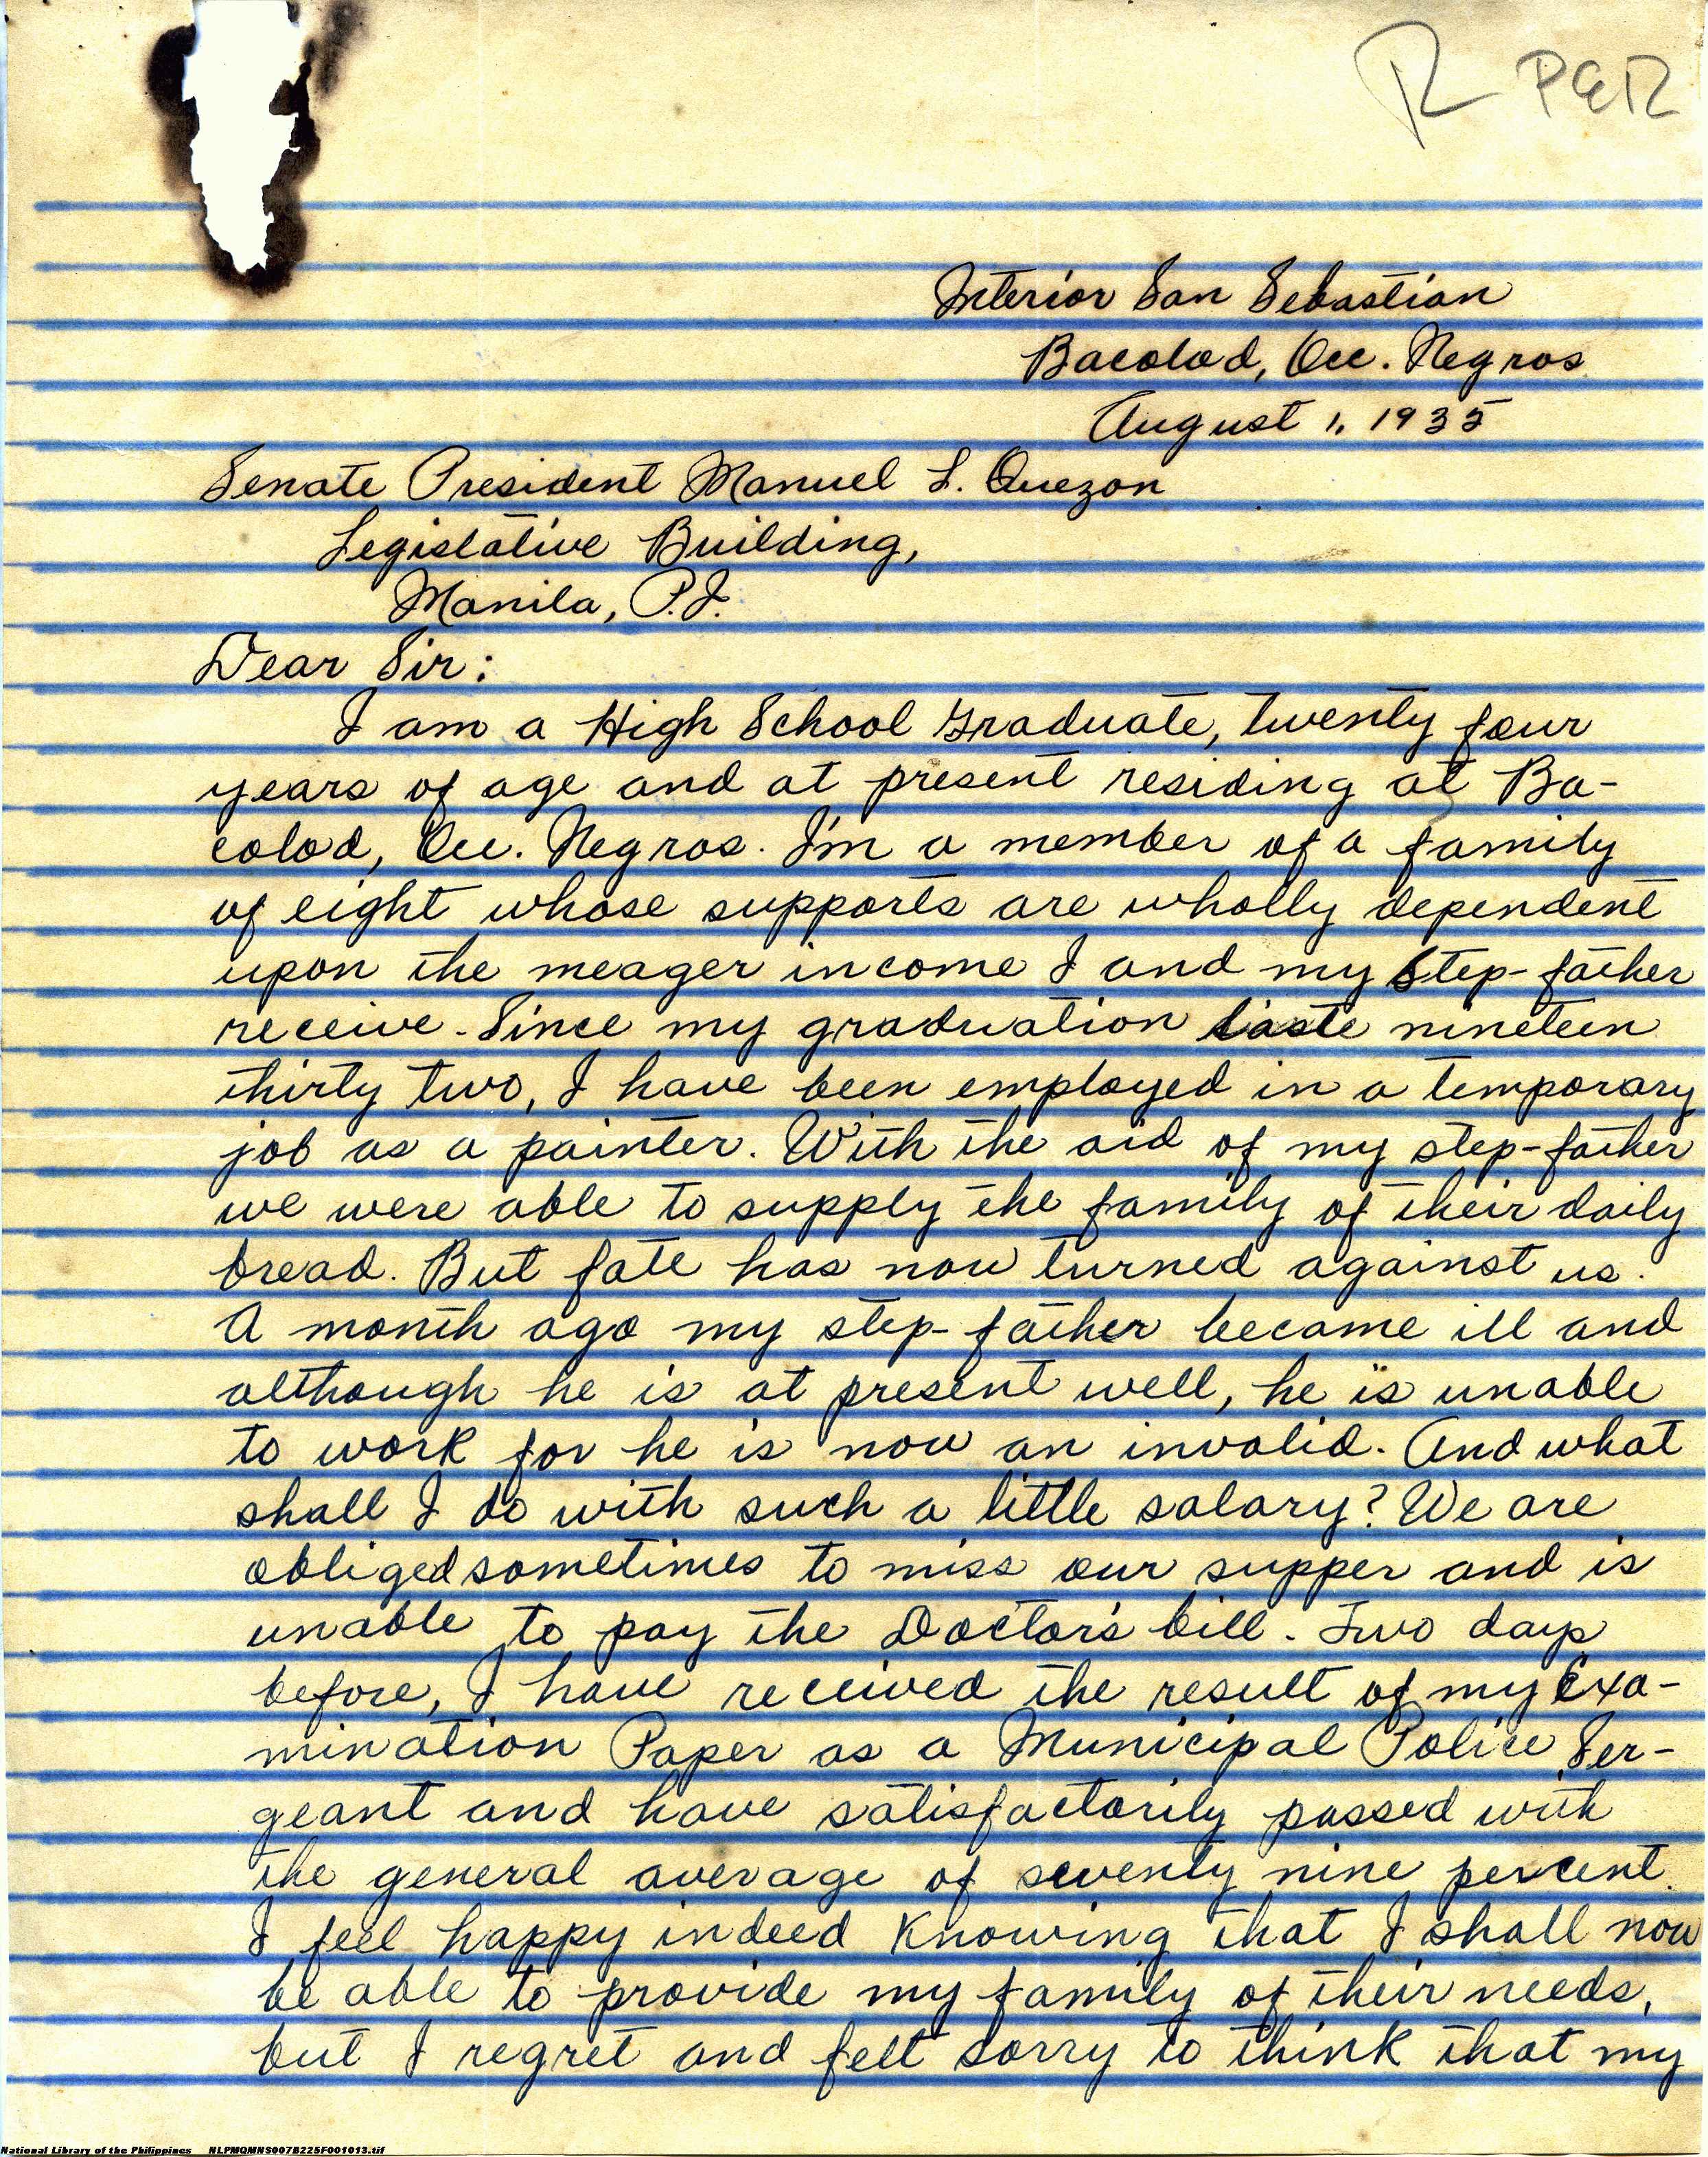 R PER
Interior San Sebastian
Bacolod, Occ. Negros
August 1, 1935
Senate President Manuel L. Quezon
Legislative Building,
Manila, P.I.
Dear Sir:
I am a High School Graduate, twenty four
years of age and at present residing at Ba-
colod, Occ. Negros. I'm a member of a family
of eight whose supports are wholly dependent
upon the meager income I and my step-father
receive. Since my graduation laste nineteen
thirty two, I have been employed in a temporary
job as a painter. With the aid of my step-father
we were able to supply the family of their daily
bread. But fate has now turned against us.
A month ago my step-father became ill and
although he is at present well, he is unable
to work for he is now an invalid. And what
shall I do with such a little salary? We are
obliged sometimes to miss our supper and is
unable to pay the Doctor's bill. Two days
before, I have received the result of my Exa-
mination Paper as a Municipal Police Ser-
geant and have satisfactorily passed with
the general average of seventy nine percent.
I feel happy indeed knowing that I shall now
be able to provide my family of their needs,
but I regret and felt sorry to think that my
National Library of the Philippines NLPMQMNS007B225F001013.tif